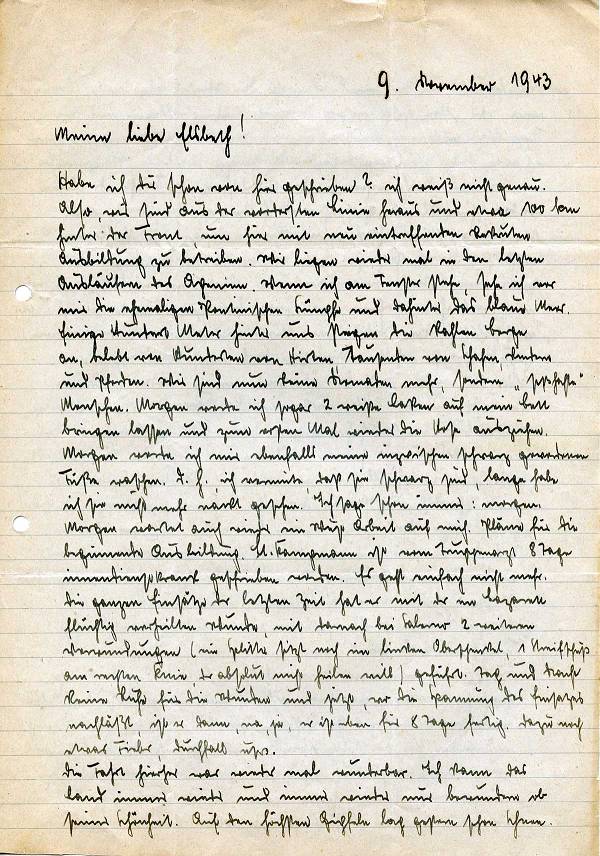 9. November 1943
Meine liebe Elsbeth!
Habe ich dir schon von hier geschrieben? ich weiß nicht genau.
Also, wir sind aus der vordersten Linie heraus und etwa 100 km
hinter der Front um hier mit neu eintreffenden Rekruten
Ausbildung zu betreiben. Wir liegen wieder mal in den letzten
Ausläufern des Apennin. Wenn ich am Fenster stehe, sehe ich vor
mir die ehemaligen Pontinischen Sümpfe und dahinter das blaue Meer.
Einige Hundert Meter hinter uns steigen die kahlen Berge
an, belebt von Hunderten von Hirten, Tausenden von Schafen, Rindern
und Pferden. Wir sind nun keine Nomaden mehr, sondern „sesshafte"
Menschen. Morgen werde ich sogar 2 weiße Laken auf mein Bett
bringen lassen und zum ersten Mal wieder die Hose ausziehen.
Morgen werde ich mir ebenfalls meine inzwischen schwarz gewordenen
Füße waschen. d. h., ich vermute, daß sie schwarz sind, lange habe
ich sie nicht mehr nackt gesehen. Ich sage schon immer: morgen.
Morgen wartet auch wieder ein Arbeit auf mich. Pläne für die
beginnende Ausbildung. Lt. Kampmann ist vom Truppenarzt 8 Tage
innendienstkrank geschrieben worden. Es geht einfach nicht mehr.
Die ganzen Einsätze der letzten Zeit hat er mit der im Lazarett
flüchtig verheilten Wunde, mit danach bei Salerno 2 weiteren
Verwundungen (ein Splitter sitzt noch im linken Oberschenkel, 1 Streifschuß
am rechten Knie der absolut nicht heilen will) geführt. Tag und Nacht
keine Ruhe für die Wunden und jetzt, wo die Spannung des Einsatzes
nachläßt, ist er dann, na, ja, er ist eben für 8 Tage fertig. Dazu noch
etwas Fieber, Durchfall usw.
Die Fahrt hierher war wieder mal wunderbar. Ich kann das
Land immer wieder und immer wieder nur bewundern ob
seiner Schönheit. Auf den höchsten Gipfeln lag gestern schon Schnee.